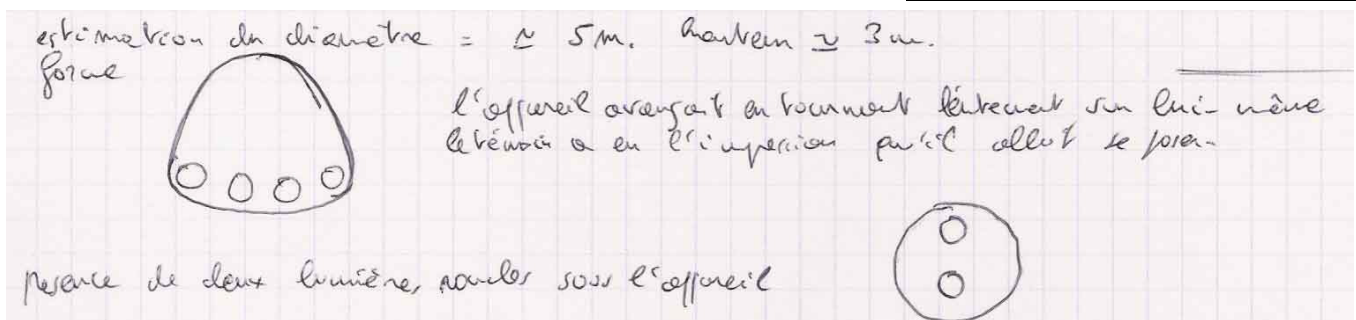 estimation du diamètre = ≃ 5m. hauteur ≃ 3m.
forme
l'appareil avançait en tournant lentement sur lui-même
le témoin a eu l'impression qu'il allait se poser.
presence de deux lumières rondes sous l'appareil